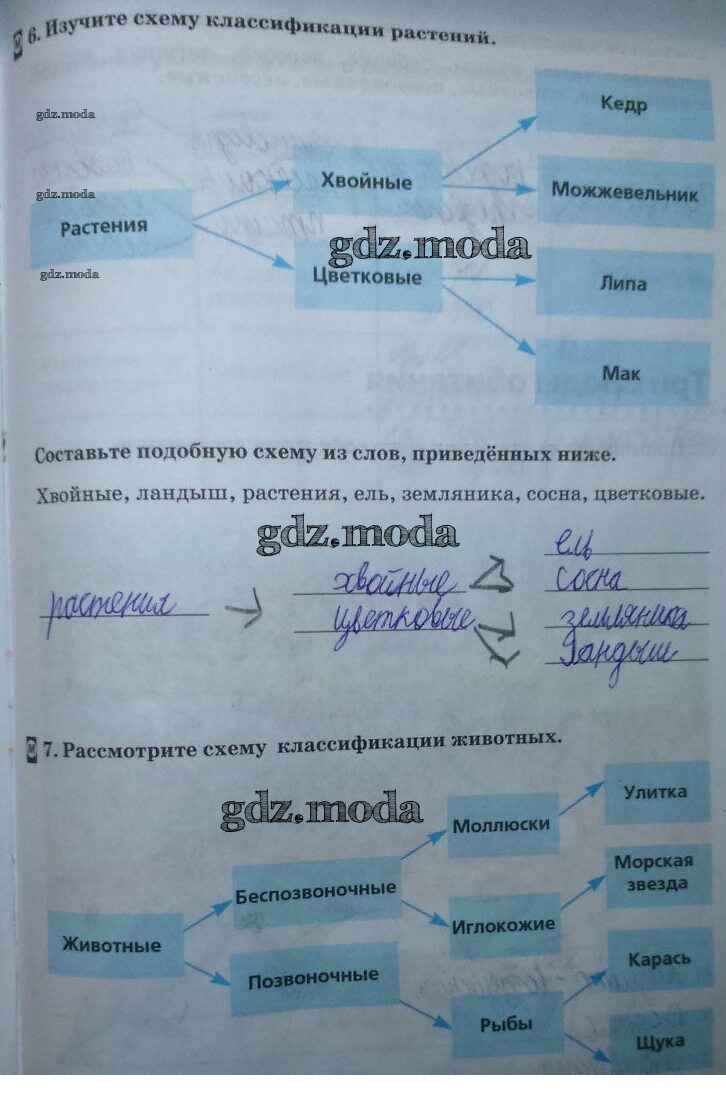 6. Изучите схему классификации растений.
gdz.moda
Кедр
Хвойные
Можжевельник
gdz.moda
Растения
gdz.moda
Цветковые
gdz.moda
Липа
Мак
Составьте подобную схему из слов, приведённых ниже.
Хвойные, ландыш, растения, ель, земляника, сосна, цветковые.
gdz.moda
ель
хвойные
сосна
растения
цветковые
земляника
ландыш
7. Рассмотрите схему классификации животных.
gdz.moda
Улитка
Моллюски
Морская
звезда
Беспозвоночные
Иглокожие
Животные
Карась
Позвоночные
Рыбы
Щука